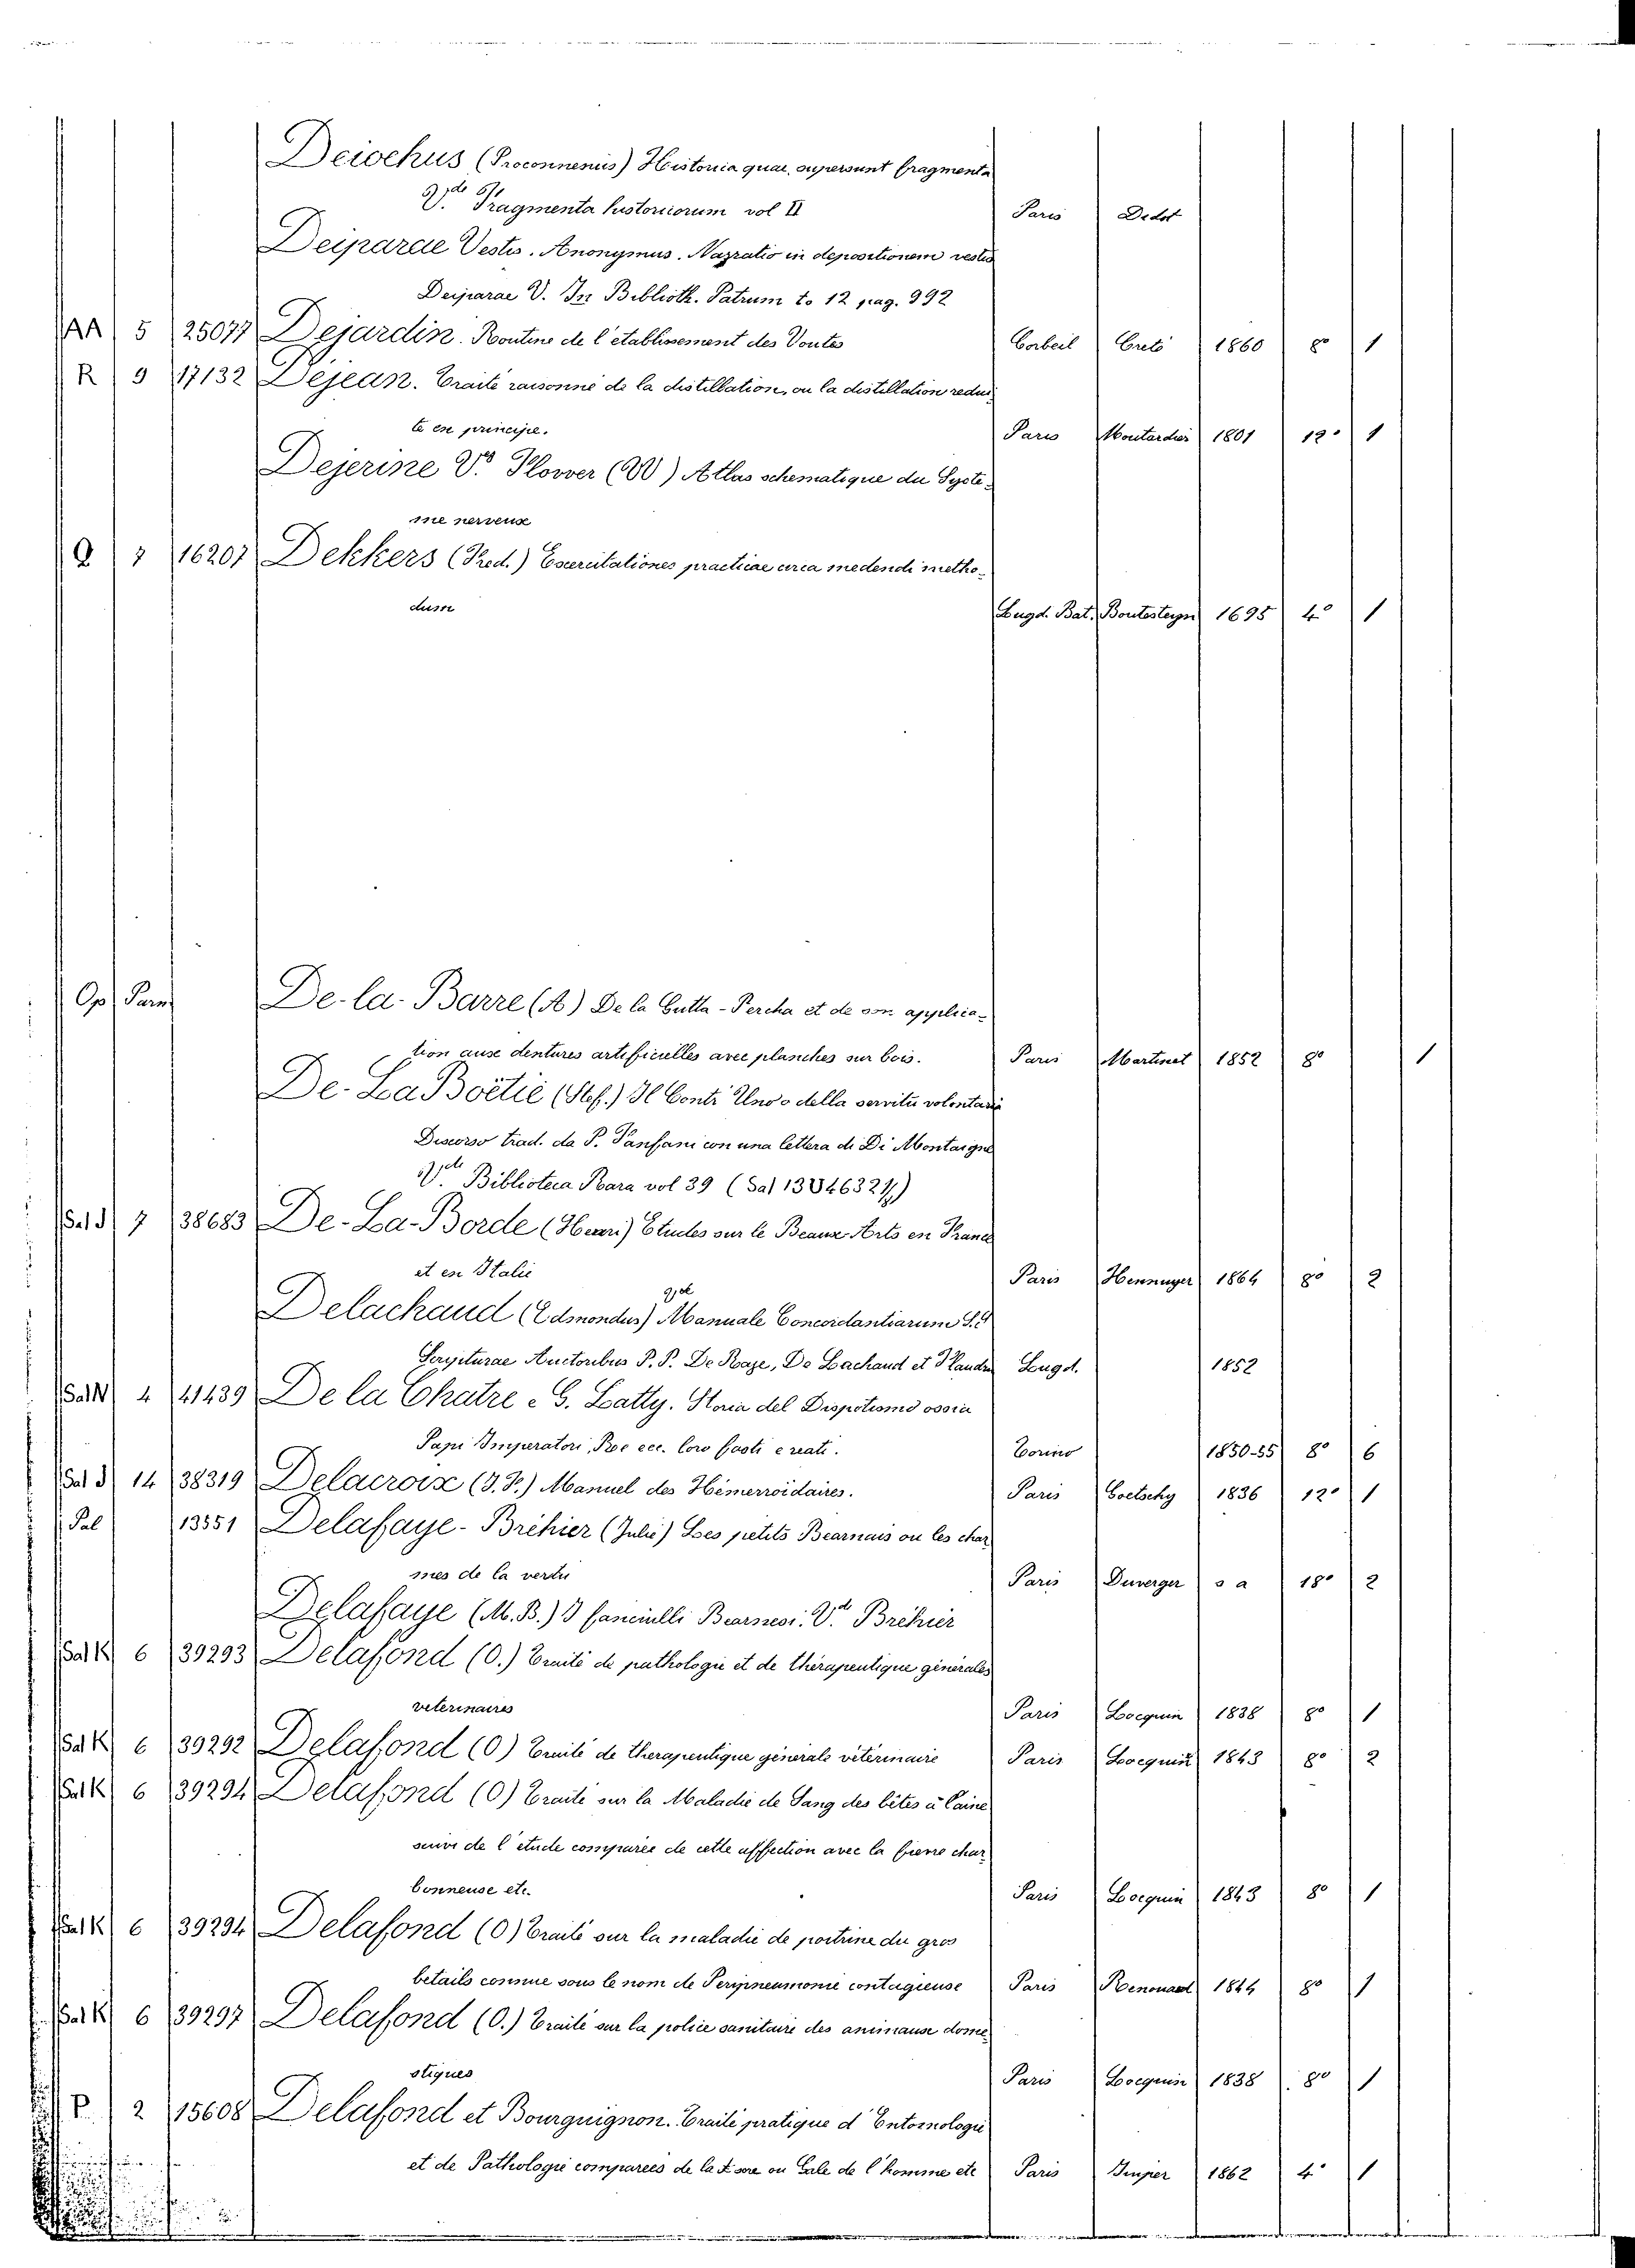 Deiochus (Proconnenius) Historia quae supersunt fragmenta
V.de Fragmenta historicorum vol II Paris Didot
Deiparae Vestis. Anonymus. Narratio in depositionem vestis
Deiparae V. In Biblioth. Patrum to 12 pag. 992
AA 5 25077 Dejardin. Routine de l'établissement des Voutes Corbeil Creté 1860 8° 1
R 9 17132 Dejean. Traité raisonné de la distillation, ou la distillation redui
te en principe. Paris Moutardier 1801 12° 1
Dejerine V.di Flower (W) Atlas schematique du Systé-
me nerveux
Q 7 16207 Dekkers (Fred.) Exercitationes practicae circa medendi metho-
dum Lugd. Bat. Boutesteyn 1695 4° 1
Op. Parm De-la-Barre (A) De la Gutta-Percha et de son applica-
tion aux dentures artificielles avec planches sur bois. Paris Martinet 1852 8° 1
De-La Boëtie (Stef.) Il Contr'Uno o della servitù volontaria
Discorso trad. da P. Fanfani con una lettera di Di Montaigne
V.de Biblioteca Rara vol 39 (Sal 13
Sal J 7 38683 De-La-Borde (Henri) Etudes sur le Beaux Arts en France
et en Italie Paris Hennuyer 1864 8° 2
Delachaud (Edmondus) Manuale Concordantiarum S.S
Scripturae Auctoribus P. P. De Raze, De Lachaud et Flandrin Lugd. 1852
Sal N 4 41439 De la Chatre e G. Latty. Storia del Dispotismo ossia
Papi Imperatori, Re ecc. loro fasti e reati. Torino 1850-55 8° 6
Sal J 14 38319 Delacroix (J. F.) Manuel des Hémerroïdaires. Paris Goetschy 1836 12° 1
Pal 13551 Delafaye-Bréhier (Julie) Les petits Bearnais ou les char
mes de la vertu Paris Duverger s a 18° 2
Delafaye (M. B.) I fanciulli Bearnesi. V.d Bréhier
Sal K 6 39293 Delafond (O.) Traité de pathologie et de thérapeutique générales
veterinaires Paris Locquin 1838 8° 1
Sal K 6 39292 Delafond (O) Traité de therapeutique générale vétérinaire Paris Locquin 1843 8° 2
Sal K 6 39294 Delafond (O) Traité sur la Maladie de Sang des bêtes à laine
suivi de l'etude comparée de cette affection avec la fievre char
bonneuse etc. Paris Locquin 1843 8° 1
Sal K 6 39294 Delafond (O) Traité sur la maladie de poitrine du gros
betails connue sous le nom de Peripneumonie contagieuse Paris Renouard 1844 8° 1
Sal K 6 39297 Delafond (O.) Traité sur la police sanitaire des animaux dome
stiques Paris Locquin 1838 8° 1
P 2 15608 Delafond et Bourguignon. Traité pratique d'Entomologie
et de Pathologie comparées de la ou Gale de l'homme etc Paris Imper 1862 4° 1